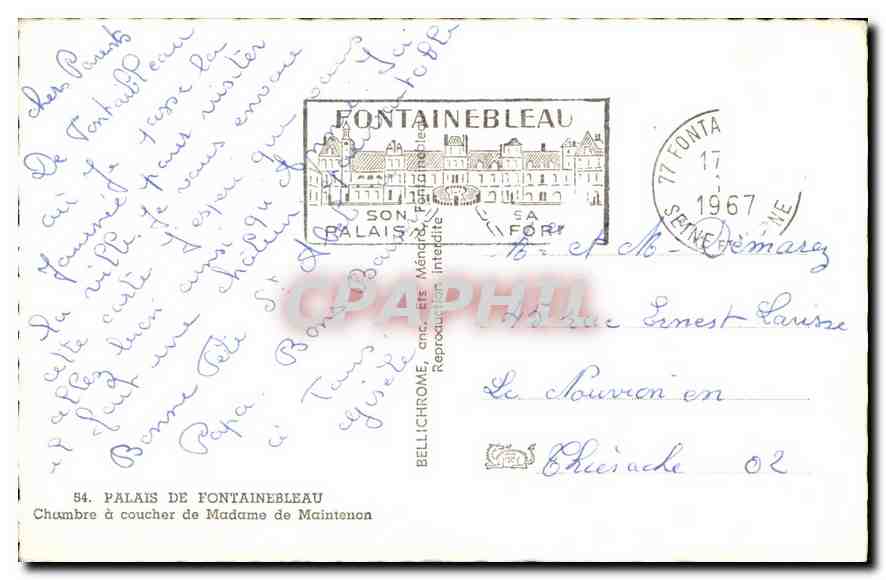 chers Parents
De Fontaibleau
où je passe la
journée pour visiter
la ville. Je vous envoie
cette carte. J'espère que vous
allez bien ainsi qu'Anne. Ici
il fait une chaleur épouvantable
Bonne Fête St
Papa. Bons Baisers
à Tous.
Gisèle
54. PALAIS DE FONTAINEBLEAU
Chambre à coucher de Madame de Maintenon
BELLICHROME, anc. Ets Ménard, Fontainebleau
Reproduction interdite
FONTAINEBLEAU
SON PALAIS
SA FORÊT
77 FONTA
17
1967
SEINE ET MARNE
CPAPHIL
Mr et Me Démarez
45 rue Ernest Larisse
La Nouvion en
Thiérache 02